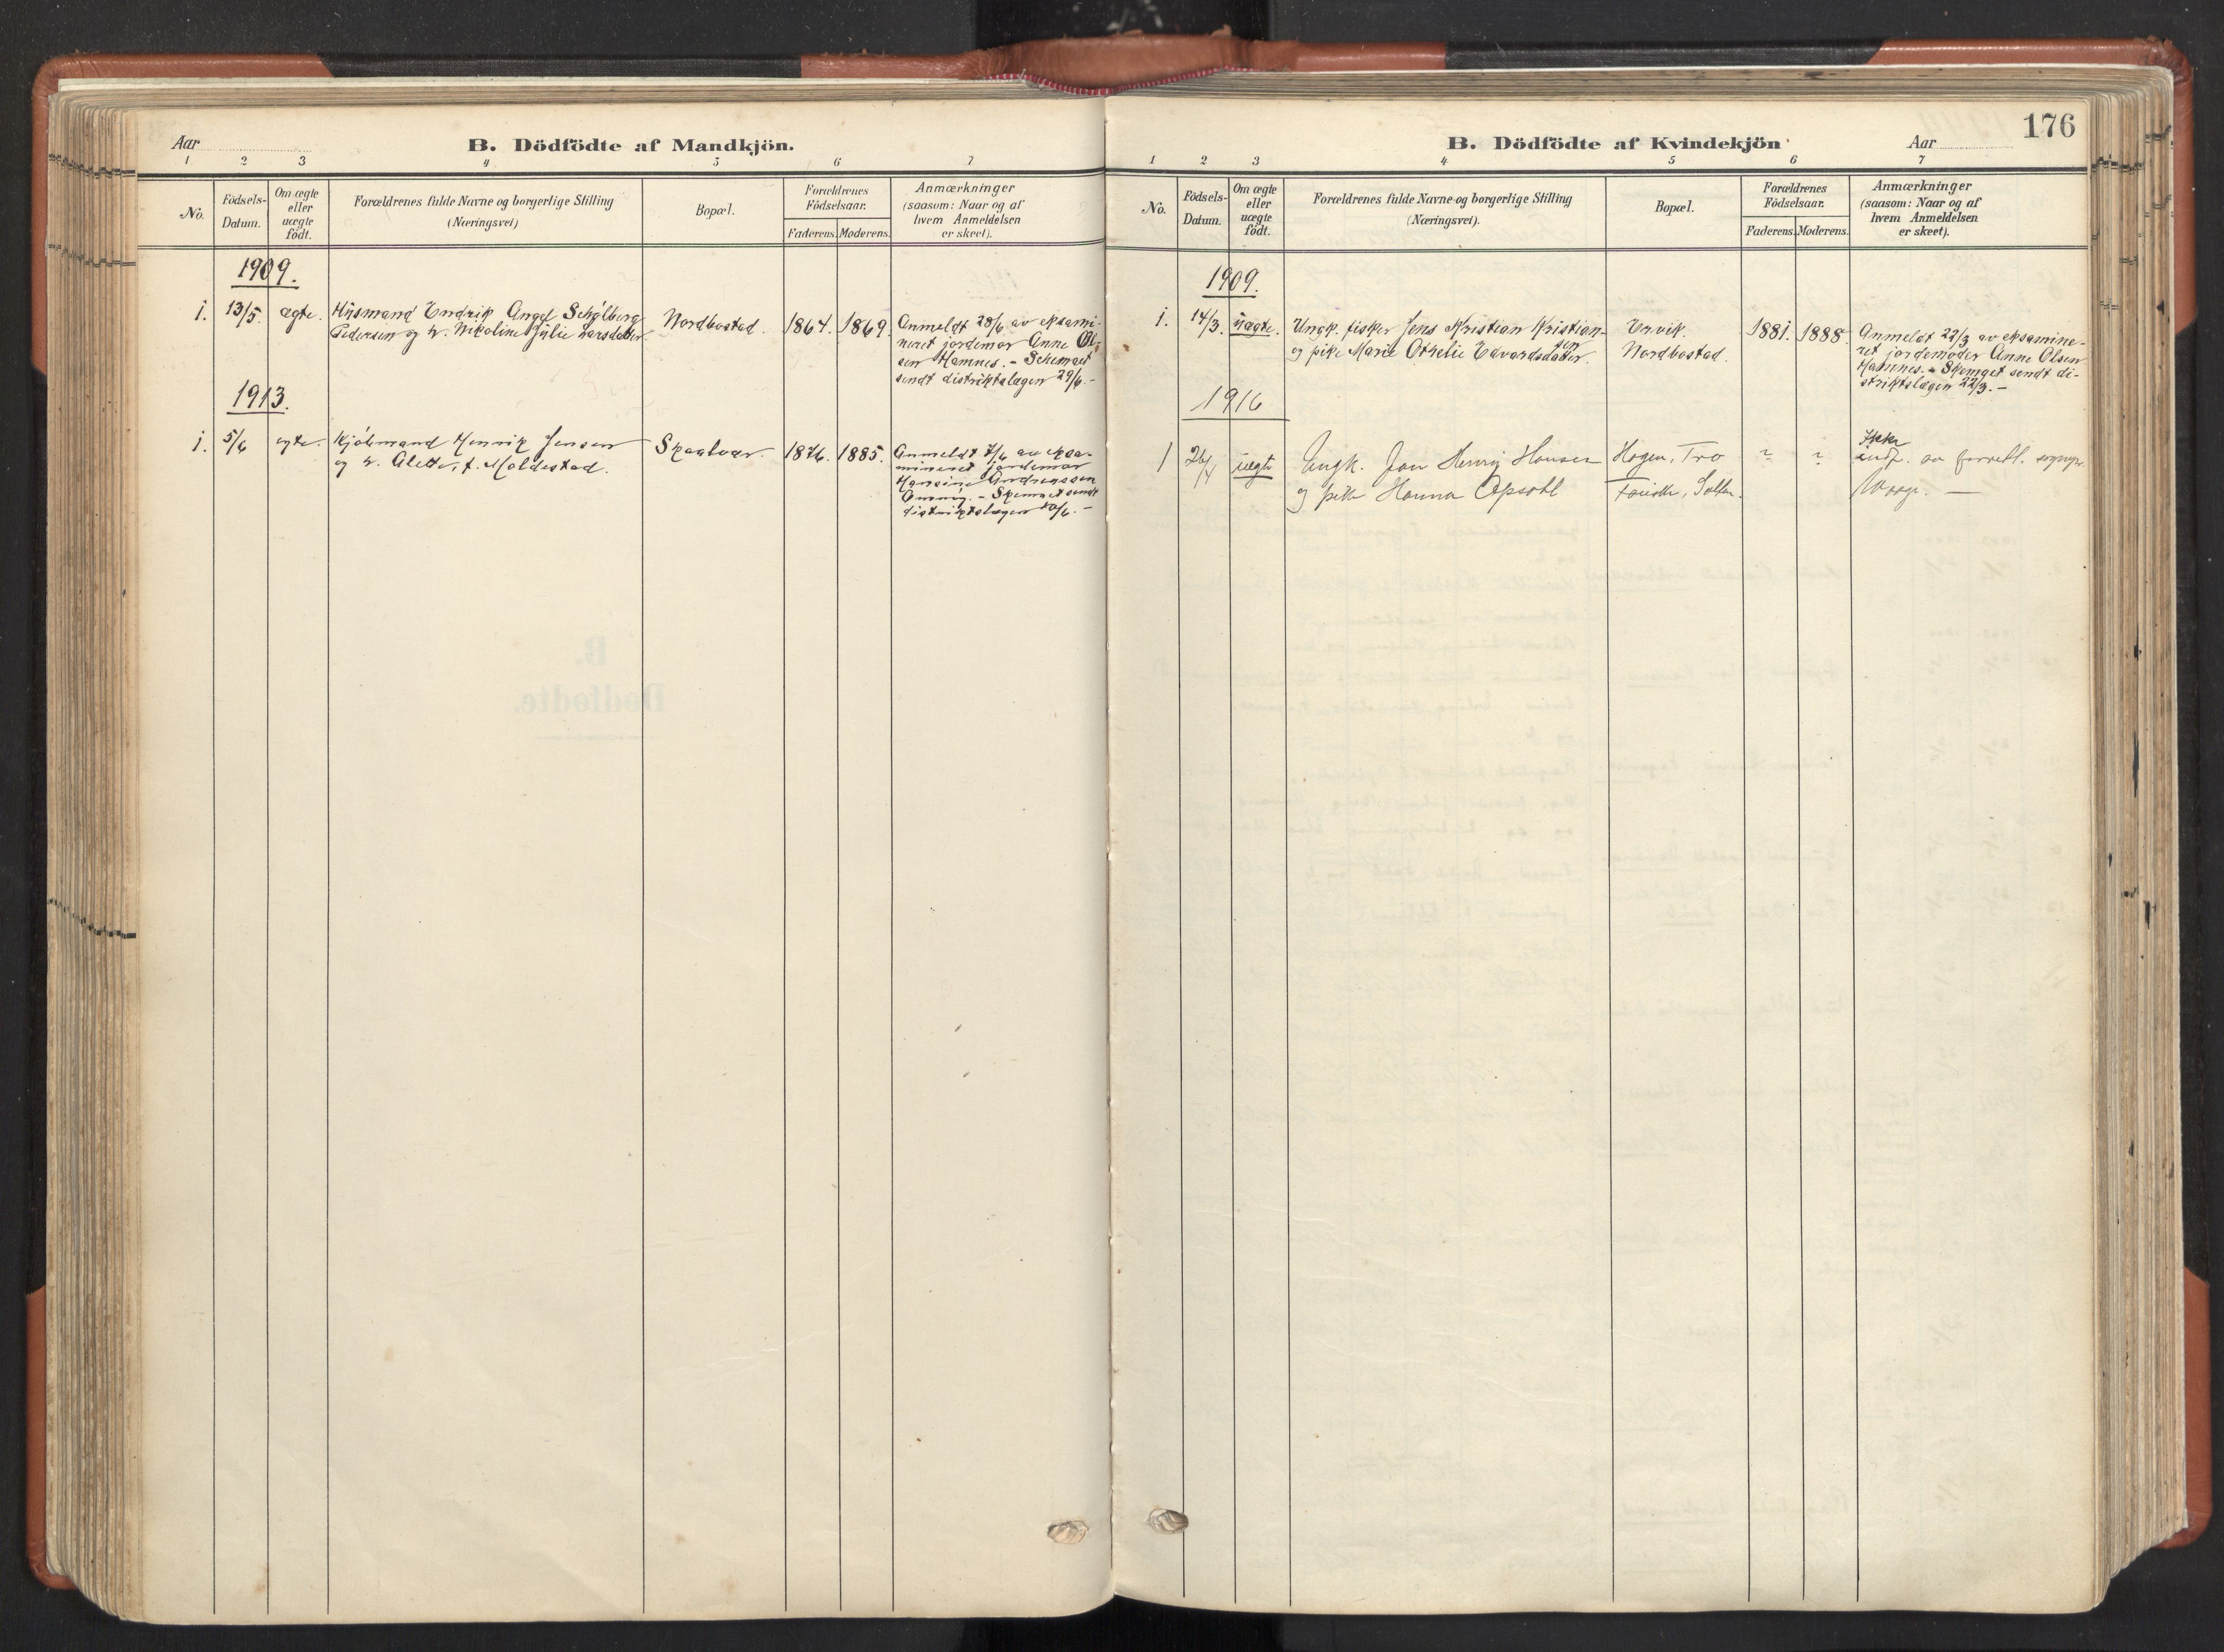 Aar
B. Dödfödte af Mandkjön.
1 2 3 4 5 6 7
No.
Födsels-
Datum.
Om ægte
eller
uægte
födt.
Forældrenes fulde Navne og borgerlige Stilling
(Næringsvei)
Bopæl.
Forældrenes
Födselsaar.
Faderens. Moderens.
Anmærkninger
(saasom: Naar og af
hvem Anmeldelsen
er skeet).
1909.
1. 13/5. ægte. Husmand Endrik Angel Schølberg Nordbostad. 1864. 1869. Anmeldt 28/6 av eksami-
Pedersen og h. Nikoline Julie Larsdatter. neret jordemor Anne Ol-
sen Hamnes. - Schemaet
sendt distriktslægen 29/6. -
1913.
1. 5/6 egte. Kjøbmand Henrik Jensen Skaalvær. 1876. 1885. Anmeldt 7/6 av eksa-
og h. Alette, f. Moldestad. mineret jordemor
Hansine Andreassen
- Skemaet sendt
distriktslægen 10/6. -
176
B. Dödfödte af Kvindekjön
Aar
1 2 3 4 5 6 7
No.
Födsels-
Datum.
Om ægte
eller
uægte
födt.
Forældrenes fulde Navne og borgerlige Stilling
(Næringsvei).
Bopæl.
Forældrenes
Födselsaar.
Faderens. Moderens.
Anmærkninger
(saasom: Naar og af
hvem Anmeldelsen
er skeet).
1909.
1. 14/3. uægte. Ungk. fisker Jens Kristian Kristian- Ervik. 1881. 1888. Anmeldt 22/3 av eksamine-
sen
og pike Marie Othelie Edvardsdatter. Nordbostad. ret jordemoder Anne Olsen
Hamnes. - Skemaet sendt di-
striktslægen 22/3. -
1916
1 26/4 uegte Ungk. Jan Henrij Hansen Hagen, Tro ? ? Ikke
indf. av forrettl. sognepr.
og pike Hanna Opsahl Fauske, Salten. Waage. -
B.
Dødfødte.